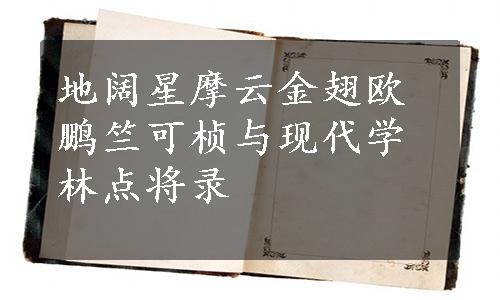 地阔星摩云金翅欧
鹏竺可桢与现代学
林点将录